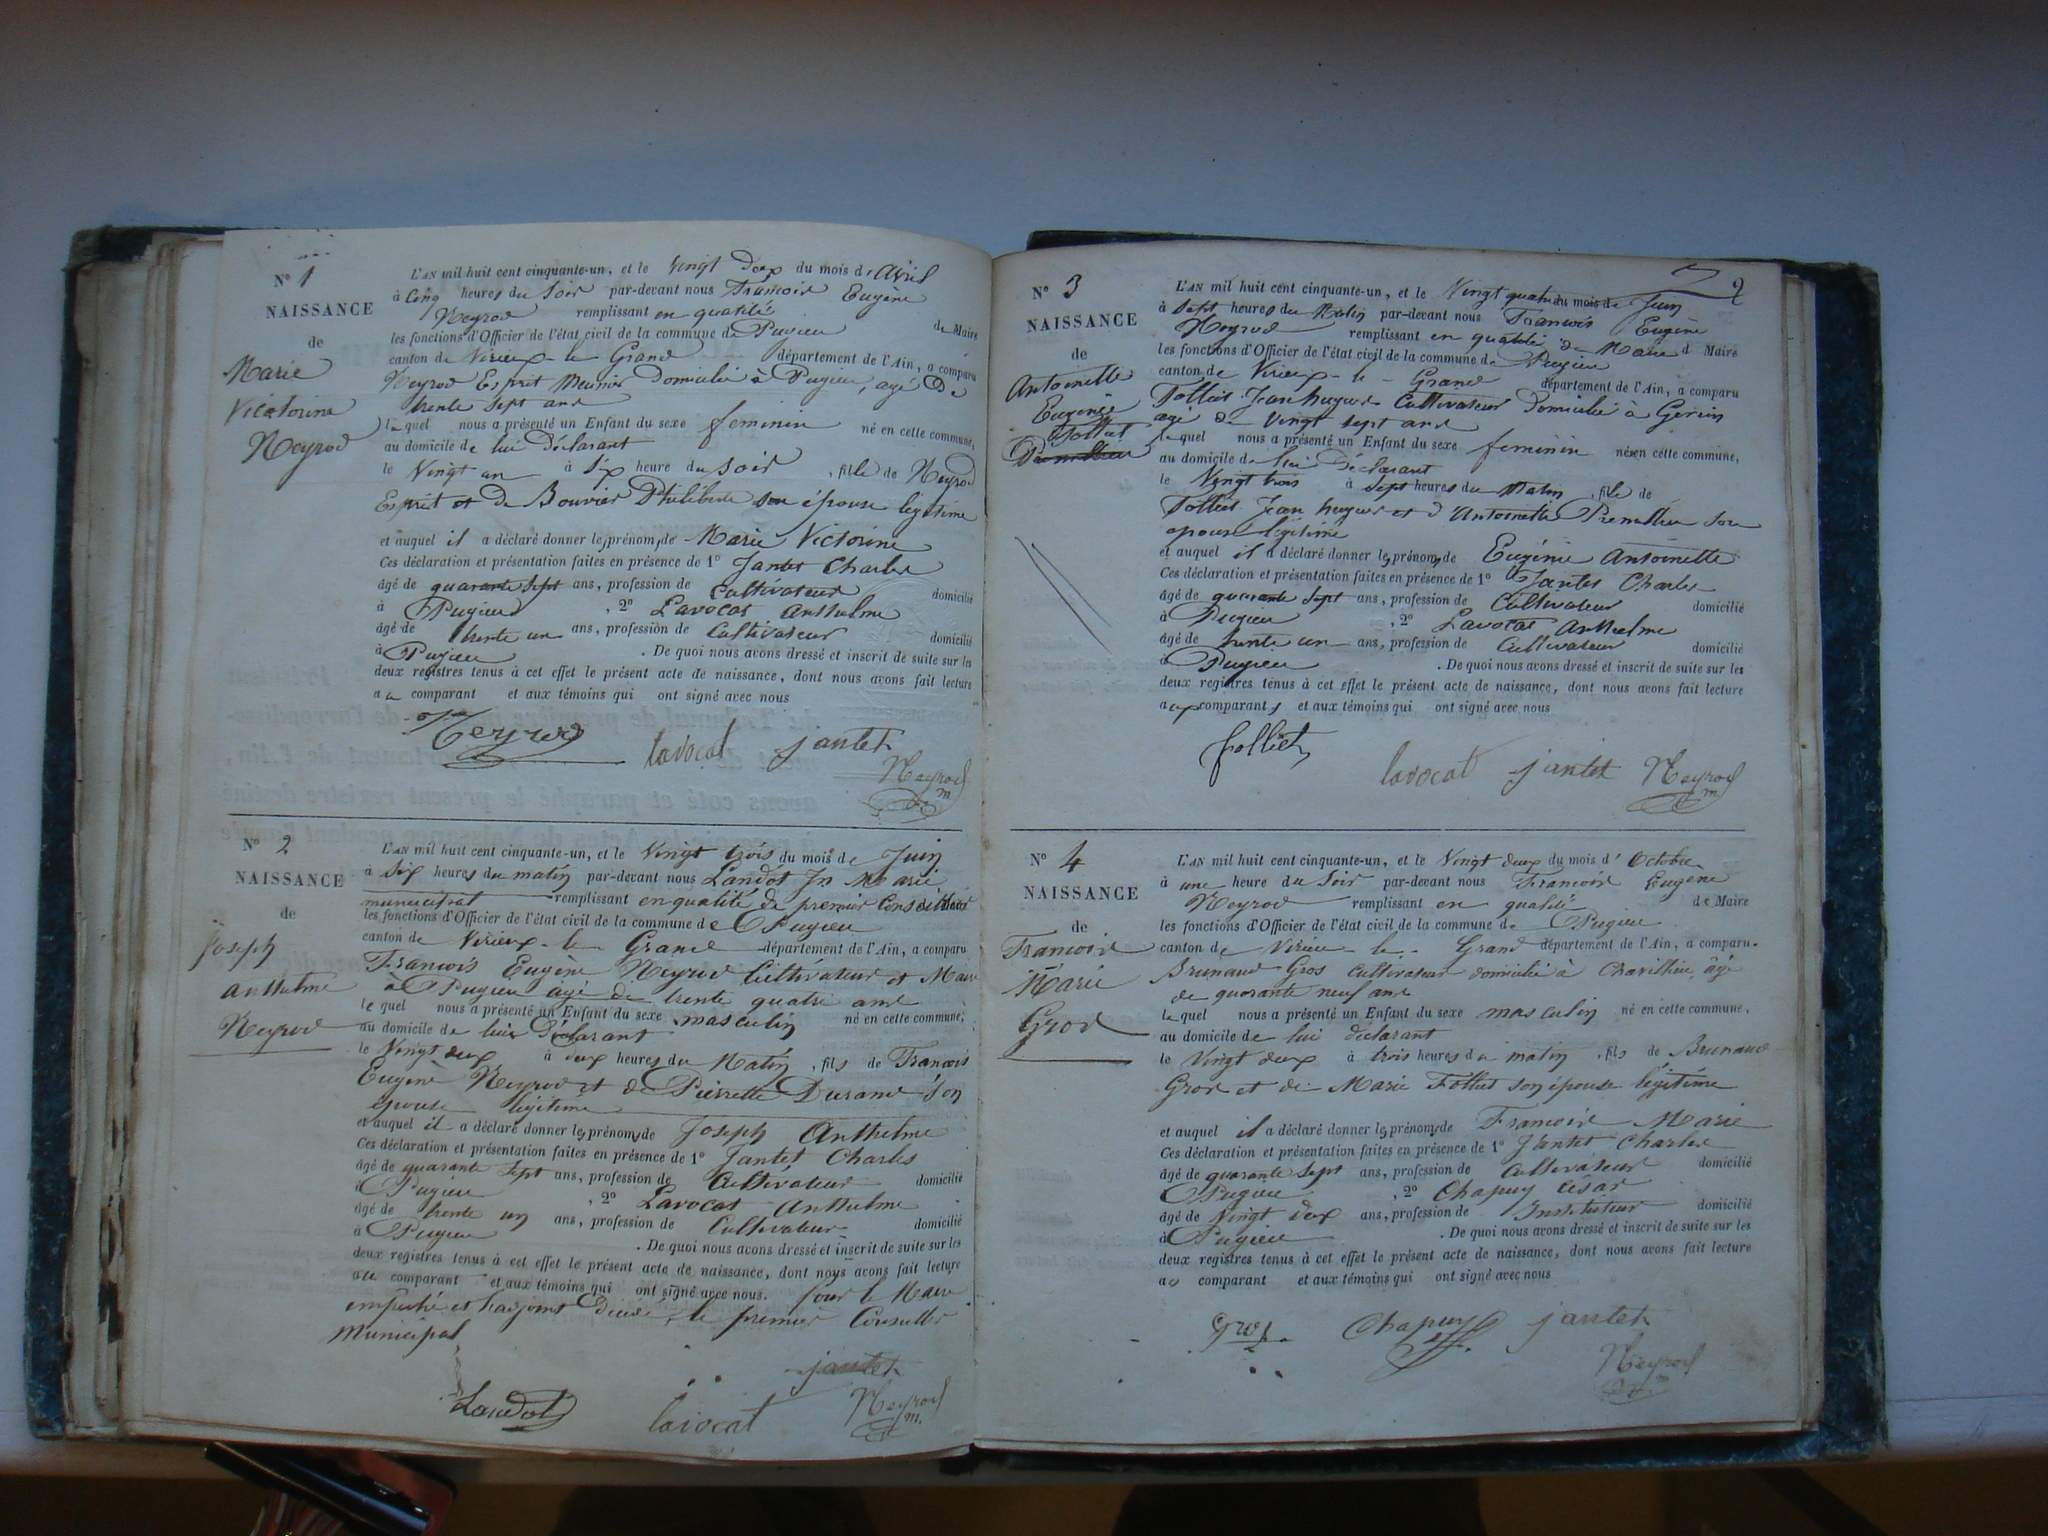 N° 1
NAISSANCE
de
Marie
Victorine
Neyrod
L'AN mil huit cent cinquante-un, et le Vingt Deux du mois d'Avril
à Cinq heures du Soir par-devant nous François Eugène
Neyrod remplissant en qualité de Maire
les fonctions d'Officier de l'état civil de la commune de Pugieu
canton de Virieux-le Grand département de l'Ain, a comparu
Neyrod Esprit Meunier Domicilié à Pugieu, agé De
trente sept ans
lequel nous a présenté un Enfant du sexe feminin né en cette commune,
au domicile de lui Déclarant
le Vingt un à Six heure du Soir , fille de Neyrod
Esprit et de Bouvier Philiberte son épouse légitime
et auquel il a déclaré donner les prénoms de Marie Victorine
Ces déclaration et présentation faites en présence de 1° Jantet Charles
âgé de quarante Sept ans, profession de Cultivateur domicilié
à Pugieu , 2° Lavocat Anthelme
âgé de trente un ans, profession de Cultivateur domicilié
à Pugieu . De quoi nous avons dressé et inscrit de suite sur les
deux registres tenus à cet effet le présent acte de naissance, dont nous avons fait lecture
au comparant et aux témoins qui ont signé avec nous
Neyrod lavocat jantet Neyrod m
N° 2
NAISSANCE
de
Joseph
Anthelme
Neyrod
L'AN mil huit cent cinquante-un, et le Vingt trois du mois de Juin
à Six heures du matin par-devant nous Landot Jn Marie
municipal remplissant en qualité de premier Conseiller
les fonctions d'Officier de l'état civil de la commune de Pugieu
canton de Virieux-le-Grand département de l'Ain, a comparu
François Eugène Neyrod Cultivateur et Maire
à Pugieu agé de trente quatre ans
lequel nous a présenté un Enfant du sexe masculin né en cette commune,
au domicile de lui Déclarant
le Vingt deux à deux heures du Matin , fils de François
Eugène Neyrod et de Pierrette Durand son
épouse légitime
et auquel il a déclaré donner les prénoms de Joseph Anthelme
Ces déclaration et présentation faites en présence de 1° Jantet Charles
âgé de quarante Sept ans, profession de Cultivateur domicilié
à Pugieu , 2° Lavocat Anthelme
âgé de trente un ans, profession de Cultivateur domicilié
à Pugieu . De quoi nous avons dressé et inscrit de suite sur les
deux registres tenus à cet effet le présent acte de naissance, dont nous avons fait lecture
au comparant et aux témoins qui ont signé avec nous. Pour le Maire
empêché et l'adjoint le premier Conseiller
Municipal
jantet
Landot lavocat Neyrod m.
2
N° 3
NAISSANCE
de
Antoinette
Eugénie
Folliet
L'AN mil huit cent cinquante-un, et le Vingt quatre du mois de Juin
à Sept heures du Matin par-devant nous François Eugène
Neyrod remplissant en qualité de Maire d Maire
les fonctions d'Officier de l'état civil de la commune de Pugieu
canton de Virieux-le-Grand département de l'Ain, a comparu
Folliet Jean hugues Cultivateur Domicilié à
agé de Vingt sept ans
lequel nous a présenté un Enfant du sexe feminin né en cette commune,
au domicile de lui Déclarant
le Vingt trois à Sept heures du Matin , fille de
Folliet Jean hugues et d'Antoinette Premillieu son
épouse légitime
et auquel il a déclaré donner les prénoms de Eugénie Antoinette
Ces déclaration et présentation faites en présence de 1° Jantet Charles
âgé de quarante Sept ans, profession de Cultivateur domicilié
à Pugieu , 2° Lavocat Anthelme
âgé de trente un ans, profession de Cultivateur domicilié
à Pugieu . De quoi nous avons dressé et inscrit de suite sur les
deux registres tenus à cet effet le présent acte de naissance, dont nous avons fait lecture
aux comparants et aux témoins qui ont signé avec nous
folliet lavocat jantet Neyrod m
N° 4
NAISSANCE
de
François
Marie
Gros
L'AN mil huit cent cinquante-un, et le Vingt deux du mois d'Octobre
à une heure du Soir par-devant nous François Eugène
Neyrod remplissant en qualité de Maire
les fonctions d'Officier de l'état civil de la commune de Pugieu
canton de Virieu-le-Grand département de l'Ain, a comparu.
Brunaud Gros cultivateur domicilié à Chavillieu, âgé
de quarante neuf ans
lequel nous a présenté un Enfant du sexe masculin né en cette commune,
au domicile de lui déclarant
le Vingt deux à trois heures du matin , fils de Brunaud
Gros et de Marie Folliet son épouse légitime
et auquel il a déclaré donner les prénoms de François Marie
Ces déclaration et présentation faites en présence de 1° Jantet Charles
âgé de quarante Sept ans, profession de Cultivateur domicilié
à Pugieu , 2° Chapuy César
âgé de Vingt deux ans, profession de Instituteur domicilié
à Pugieu . De quoi nous avons dressé et inscrit de suite sur les
deux registres tenus à cet effet le présent acte de naissance, dont nous avons fait lecture
au comparant et aux témoins qui ont signé avec nous
Gros Chapuy jantet
Neyrod m